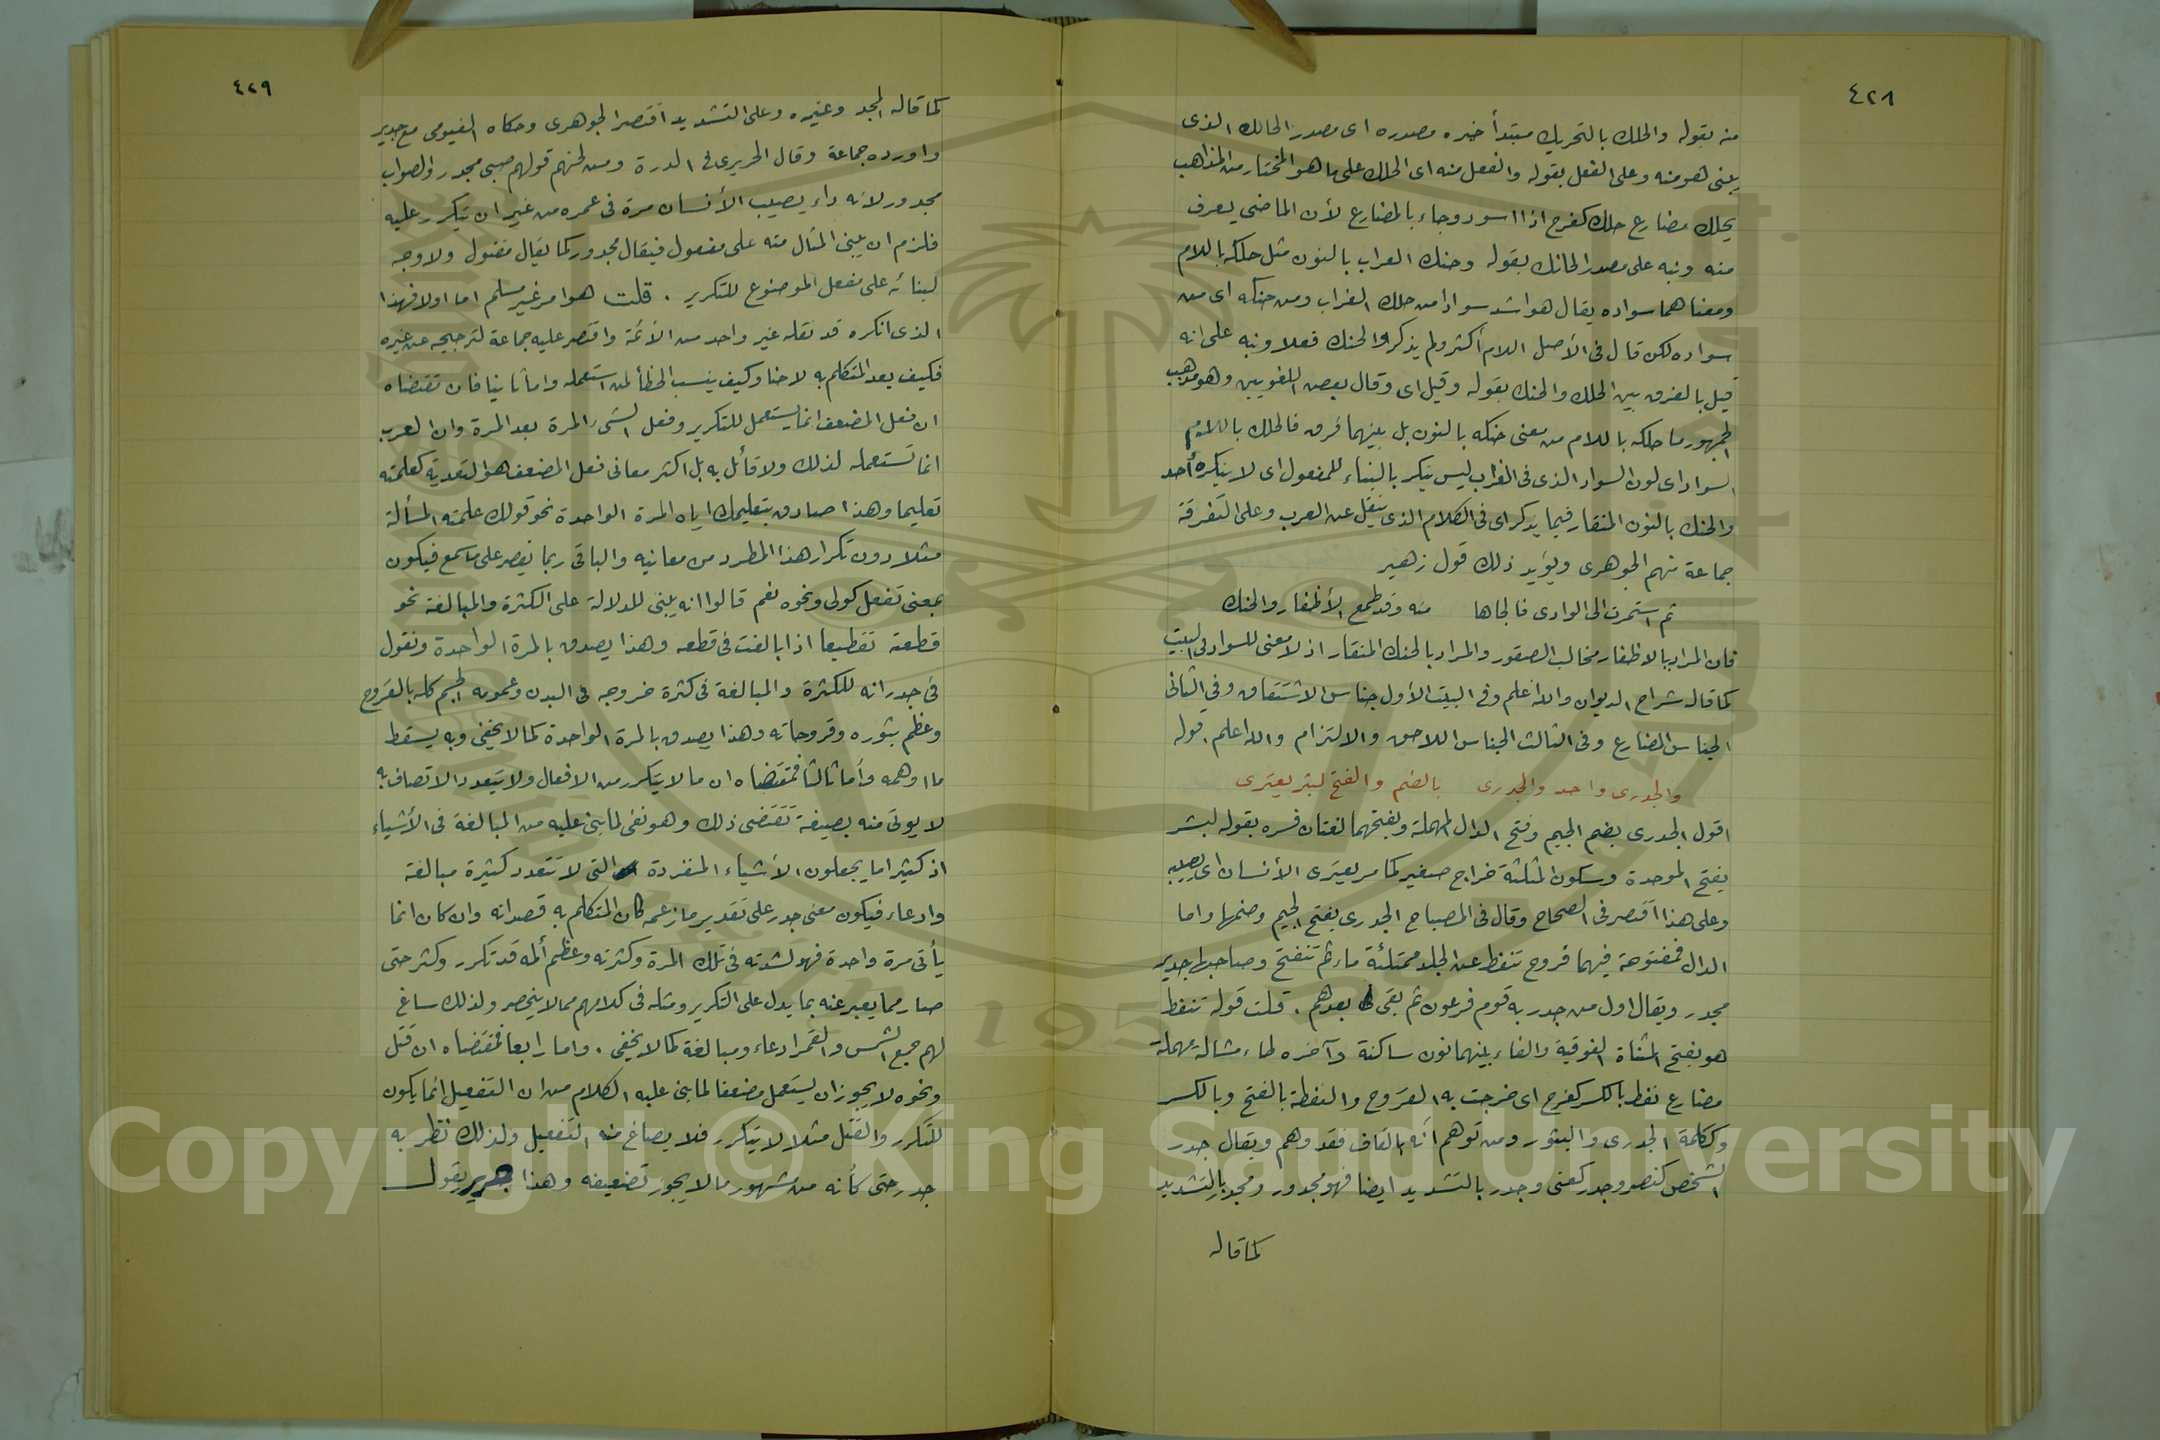 ٤٢٨
منه بقوله والحلك بالتحريك مبتدأ خبره مصدره اى مصدر الحالك الذى
يعنى هو منه وعلى الفعل بقوله والفعل منه اى الحلك على ما هو المختار من المذاهب
يحلك مضارع حلك كفرح اذا اسود وجاء بالمضارع لأن الماضى يعرف
منه ونبه على مصدر الحانك بقوله وحنك الغراب بالنون مثل حلكه باللام
ومعناهما سواده يقال هو اشد سوادا من حلك الغراب ومن حنكه اى من
سواده لكن قال فى الأصل اللام أكثر ولم يذكروا لحنك فعلا ونبه على انه
قيل بالفرق بين الحلك والحنك بقوله وقيل اى وقال بعض اللغويين وهو مذهب
الجمهور ما حلكه باللام من معنى حنكه بالنون بل بينهما فرق فالحلك باللام
السواد اى لون السواد الذى فى الغراب ليس ينكر بالبناء للمفعول اى لا ينكره أحد
والحنك بالنون المنقار فيما يذكر اى فى الكلام الذى ينقل عن العرب وعلى التفرقة
جماعة منهم الجوهرى ويؤيد ذلك قول زهير
ثم استمرت الى الوادى فالجاها منه وقد طمع الأظفار والحنك
فان المراد بالاظفار مخالب الصقور والمراد بالحنك المنقار اذ لا معنى للسواد فى البيت
كما قاله شراح الديوان والله اعلم وفى البيت الأول جناس الاشتقاق وفى الثانى
الجناس المضارع وفى الثالث الجناس اللاحق والالتزام والله اعلم . قوله
والجدرى واحد والجدرى بالضم والفتح لبثر يعترى
اقول الجدرى بضم الجيم وفتح الدال المهملة وبفتحهما لغتان فسره بقوله لبثر
بفتح الموحدة وسكون المثلثة خراج صغير كما مر يعترى الأنسان اى يصيبه
وعلى هذا اقتصر فى الصحاح وقال فى المصباح الجدرى بفتح الجيم وضمها واما
الدال فمفتوحة فيهما قروح تنفط عن الجلد ممتلئة ماء ثم تنفتح وصاحبها جدير
مجدر ويقال اول من جدر به قوم فرعون ثم بقى بعدهم . قلت قوله تنفط
هو بفتح المثناة الفوقية والفاء بينهما نون ساكنة وآخره طاء مشالة مهملة
مضارع نفط بالكسر كفرح اى خرجت به القروح والنفطة بالفتح وبالكسر
وككلمة الجدرى والبثور ومن توهم أنه بالقاف فقد وهم ويقال جدر
الشخص كنصر وجدر كعنى وجدر بالتشديد ايضا فهو مجدور ومجدر بالتشديد
كما قاله
٤٢٩
كما قاله المجد وغيره وعلى التشديد اقتصر الجوهرى وحكاه الفيومى مع جدير
واورده جماعة وقال الحريرى فى الدرة ومن لحنهم قولهم صبى مجدر والصواب
مجدور لانه داء يصيب الأنسان مرة فى عمره من غير ان يتكرر عليه
فلزم ان يبنى المثال منه على مفعول فيقال مجدور كما يقال مقتول ولا وجه
لبنائه على مفعل الموضوع للتكرير . قلت هو امر غير مسلم اما اولا فهذا
الذى انكره قد نقله غير واحد من الأئمة واقتصر عليه جماعة لترجيحه عن غيره
فكيف يعد المتكلم به لاحنا وكيف ينسب الخطأ لمن استعمله واما ثانيا فان تقتضاه
ان فعل المضعف انما يستعمل للتكرير وفعل الشىء المرة بعد المرة وان العرب
انما تستعمله لذلك ولا قائل به بل اكثر معانى فعل المضعف هو التعدية كعلمته
تعليما وهذا صادق بتعليمك اياه المرة الواحدة نحو قولك علمته المسألة
مثلا دون تكرار هذا المطرد من معانيه والباقى ربما يقصر على ما سمع فيكون
بمعنى تفعل كولى ونحوه نعم قالوا انه يبنى للدلالة على الكثرة والمبالغة نحو
قطعته تقطيعا اذا بالغت فى قطعه وهذا يصدق بالمرة الواحدة ونقول
فى جدر انه للكثرة والمبالغة فى كثرة خروجه فى البدن وعمومه الجسم كله بالقروح
وعظم بثوره وقروحاته وهذا يصدق بالمرة الواحدة كما لا يخفى وبه يسقط
ما اوهمه وأما ثالثا فمقتضاه ان ما لا يتكرر من الافعال ولا يتعدد الاتصاف به
لا يؤتى منه بصيغة تقتضى ذلك وهو نفى لما بنى عليه من المبالغة فى الأشياء
اذ كثيرا ما يجعلون الأشياء المنفردة التى لا تتعدد كثيرة مبالغة
وادعاء فيكون معنى جدر على تقدير ما زعمه كان المتكلم به قصد انه وان كان انما
يأتى مرة واحدة فهو لشدته فى تلك المرة وكثرته وعظم ألمه قد تكرر وكثر حتى
صار مما يعبر عنه بما يدل على التكرير ومثله فى كلامهم مما لا ينحصر ولذلك ساغ
لهم جمع الشمس والقمر ادعاء ومبالغة كما لا يخفى . واما رابعا فمقتضاه ان قتل
ونحوه لا يجوز ان يستعمل مضعفا لما بنى عليه الكلام من ان التفعيل انما يكون
للتكرر والقتل مثلا لا يتكرر فلا يصاغ منه التفعيل ولذلك نظر به
جدر حتى كأنه من مشهور ما لا يجوز تضعيفه وهذا جرير يقول
Copyright © King Saud University
1957